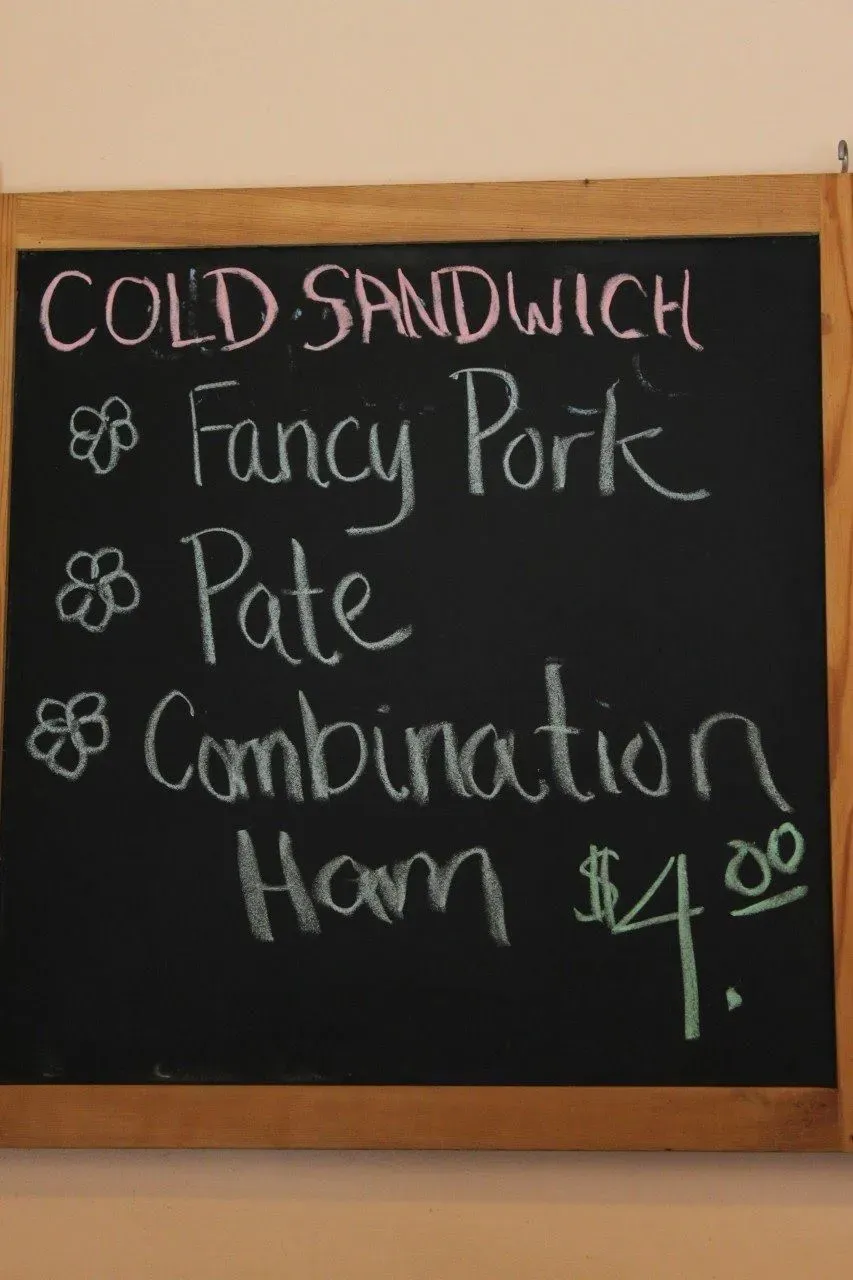 COLD SANDWICH
Fancy Pork
Pate
Combination
Ham $4.00